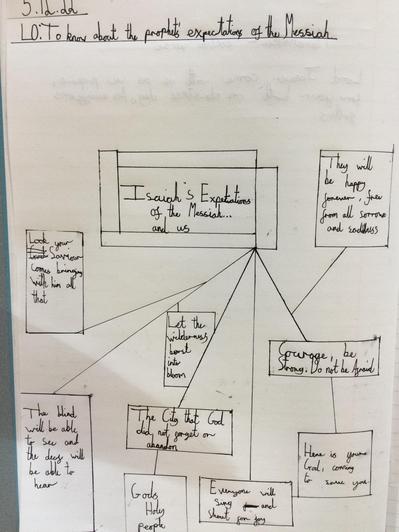 5.12.22
LO: To know about the prophets' expectations of the Messiah
Isaiah's Expectations
of the Messiah...
and us
They will
be happy
forever, free
from all sorrow
and sadness
Look your
Saviour
comes bringing
with him all
that
Let the
wilderness
burst
into
bloom
Courage, be
Strong. Do not be Afraid
The blind
will be able
to see and
the deaf will
be able to
hear
The City that God
did not forget or
abandon
Here is your
God, coming
to save you.
God's
Holy
people
Everyone will
sing and
shout for joy